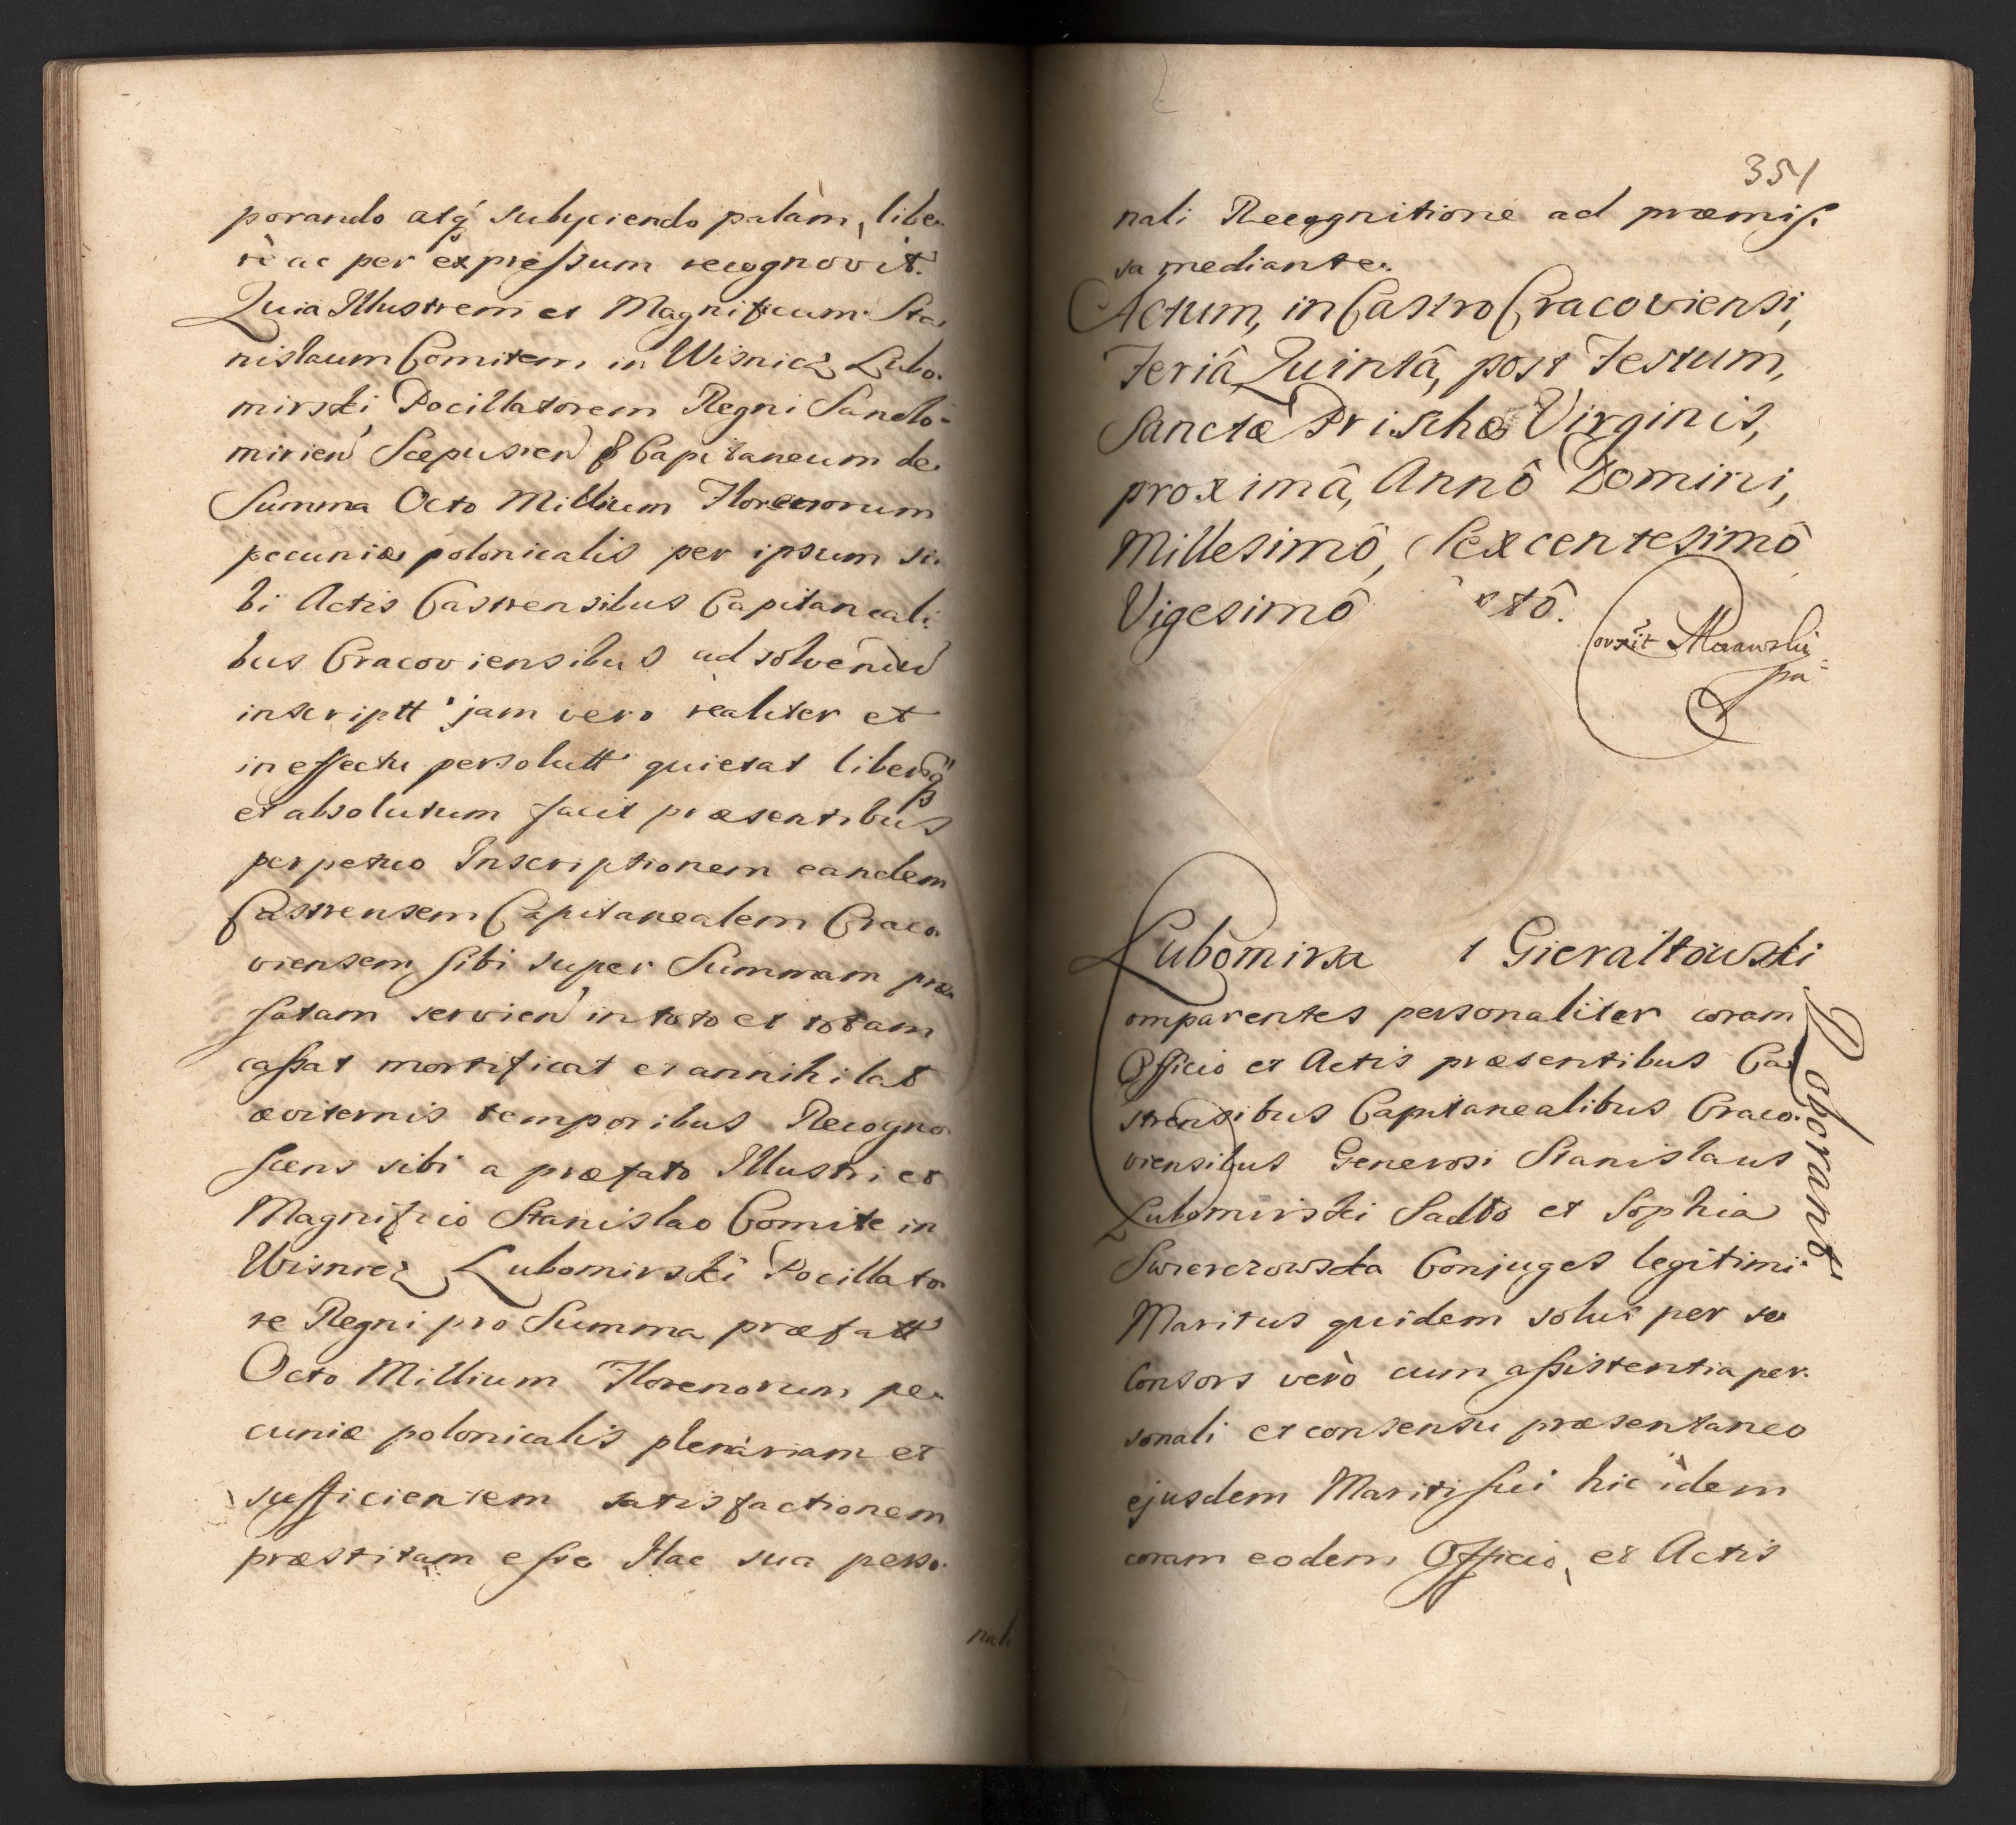 porando atq́ subyciendo palàm, libe-
rè ac per expressum recognovit.
Quia Illustrem et Magnificum Sta-
nislaum Comitem in Wisnicz Lubo-
mirski Pocillatorem Regni Sando-
mirien Scepusien & Capitaneum de
Summa Octo Millium Florenorum
pecuniæ polonicalis per ipsum si-
bi Actis Castrensibus Capitaneali-
bus Cracoviensibus ad solvend
inscriptt jam vero realiter et
in effectu persolutt quietat liberq́
et absolutum facit præsentibus
perpetuo Inscriptionem eandem
Castrensem Capitanealem Craco-
viensem sibi super Summam præ-
fatam servien in toto et totam
cassat mortificat et annihilat
æviternis temporibus Recogno-
scens sibi a præfato Illustri et
Magnifico Stanislao Comite in
Wisnicz Lubomirski Pocillato-
re Regni pro Summa præfatt
Octo Millium Florenorum pe-
cuniæ polonicalis plenariam et
sufficientem satisfactionem
præstitam esse Hac sua perso-
nali
351
nali Recognitione ad præmis-
sa mediante.
Actum, in Castro Cracoviensi,
Feriâ Quintâ, post Festum,
Sanctæ Prischæ Virginis,
proximâ, Annô Domini,
Millesimô, Sexcentesimô
Vigesimô ctô.
Lubomirsc t Gieraltowski
Roborant
omparentes personaliter coram
Officio et Actis præsentibus Ca-
strensibus Capitanealibus Craco-
viensibus Generosi Stanislaus
Lubomirski Sadło et Sophia
Swierczowska Conjuges legitimi
Maritus quidem solus per se
Consors verò cum assistentia per-
sonali et consensu præsentaneo
ejusdem Mariti sui hic idem
coram eodem Officio, et Actis